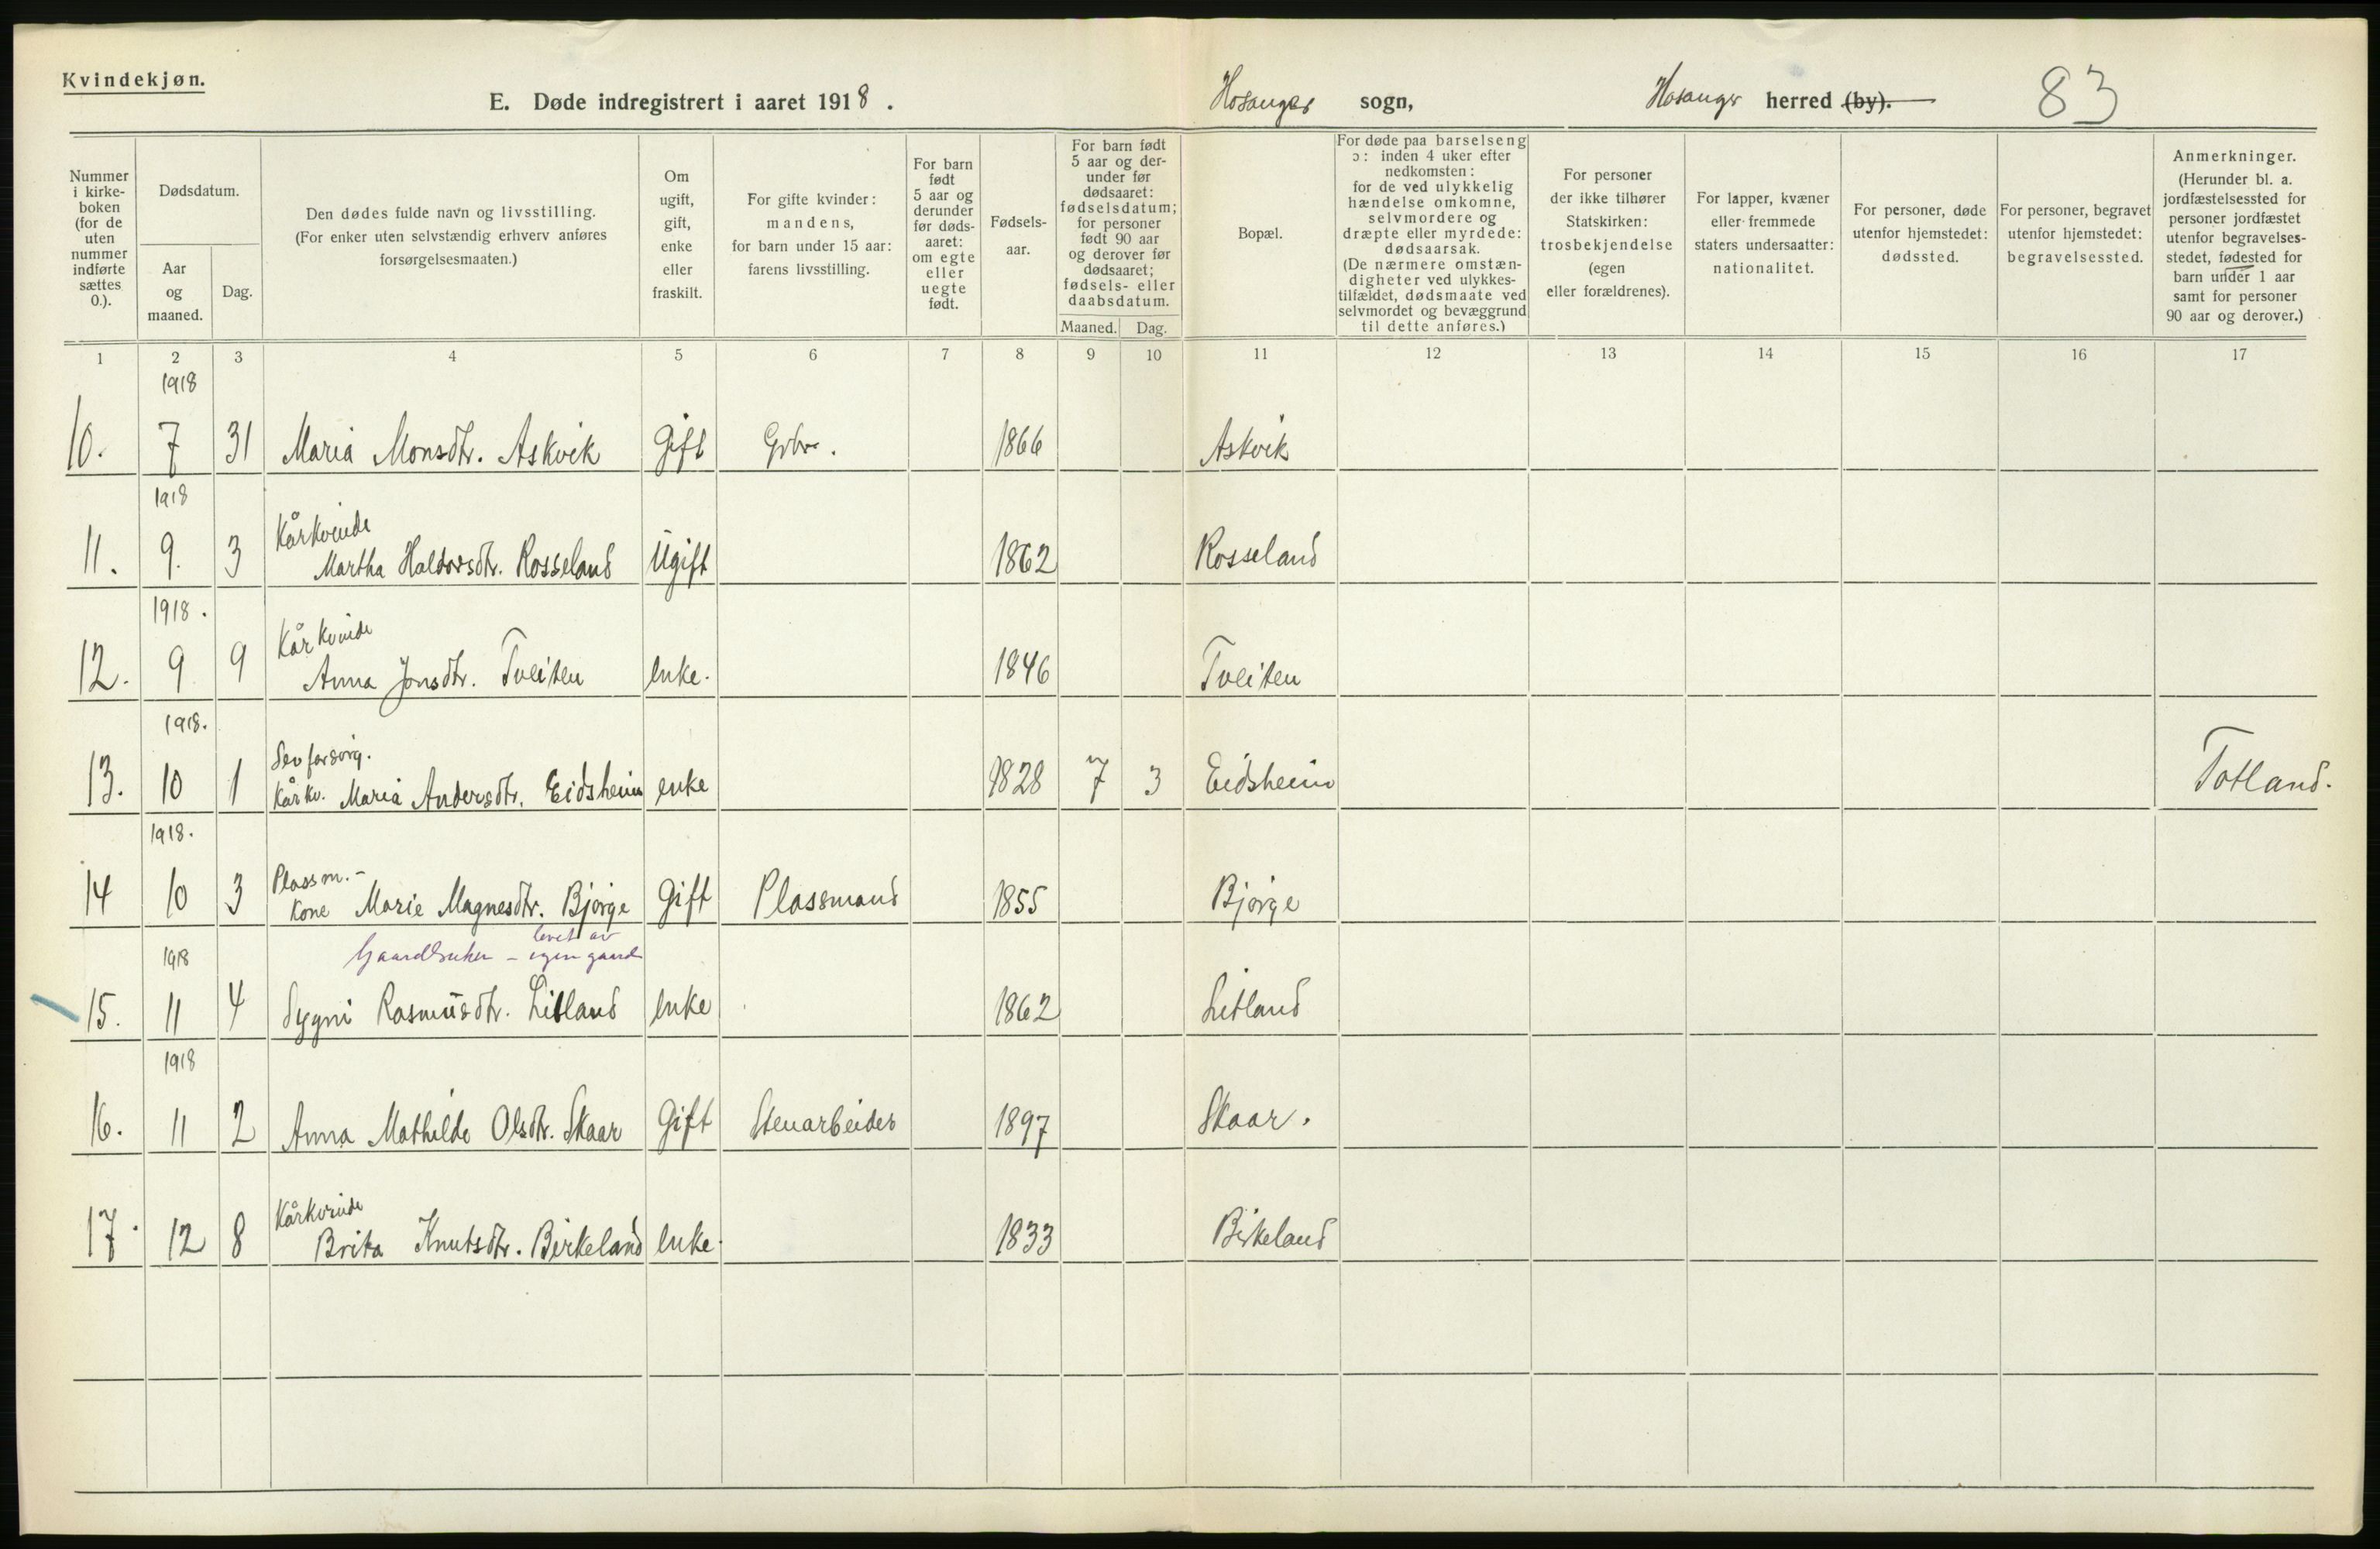 Kvindekjøn.
E. Døde indregistrert i aaret 1918.
Hosanger sogn,
Hosanger herred (by).
83
Nummer i kirke-boken (for de uten nummer indførte sættes 0.).
Dødsdatum.
Aar og maaned.
Dag.
Den dødes fulde navn og livsstilling.
(For enker uten selvstændig erhverv anføres forsørgelsesmaaten.)
Om ugift, gift, enke eller fraskilt.
For gifte kvinder: mandens, for barn under 15 aar: farens livsstilling.
For barn født 5 aar og derunder før døds-aaret: om egte eller uegte født.
Fødsels-aar.
For barn født 5 aar og der-under før dødsaaret: fødselsdatum; for personer født 90 aar og derover før dødsaaret; fødsels- eller daabsdatum.
Maaned.
Dag.
Bopæl.
For døde paa barselseng ɔ: inden 4 uker efter nedkomsten: for de ved ulykkelig hændelse omkomne, selvmordere og dræpte eller myrdede: dødsaarsak.
(De nærmere omstæn-digheter ved ulykkes-tilfældet, dødsmaate ved selvmordet og bevæggrund til dette anføres.)
For personer der ikke tilhører Statskirken: trosbekjendelse (egen eller forældrenes).
For lapper, kvæner eller fremmede staters undersaatter: nationalitet.
For personer, døde utenfor hjemstedet: dødssted.
For personer, begravet utenfor hjemstedet: begravelsessted.
Anmerkninger.
(Herunder bl. a. jordfæstelsessted for personer jordfæstet utenfor begravelses-stedet, fødested for barn under 1 aar samt for personer 90 aar og derover.)
1 2 3 4 5 6 7 8 9 10 11 12 13 14 15 16 17
1918
10. 7 31 Maria Monsdtr. Askvik Gift Grbr. 1866 Askvik
1918
Kårkvinde
11. 9. 3 Martha Haldorsdtr. Rosseland Ugift 1862 Rosseland
1918.
Kårkvinde
12. 9 9 Anna Jonsdtr. Tveiten enke. 1846 Tveiten
1918.
Sev forsørg.
13. 10 1 Kårkv. Maria Andersdtr. Eidsheim enke 1828 7 3 Eidsheim Totland.
1918.
Plassm.-
14 10 3 Kone Marie Magnesdtr. Bjørge Gift Plassmand 1855 Bjørge
levet av
1918 Gaardbruker - egen gaard
15. 11 4 Sygni Rasmusdtr. Litland enke 1862 Litland
1918
16. 11 2 Anna Mathilde Olsdtr. Skaar Gift Stenarbeider 1897 Skaar.
Kårkvinde
17. 12 8 Brita Knutsdtr. Birkeland enke. 1833 Birkeland